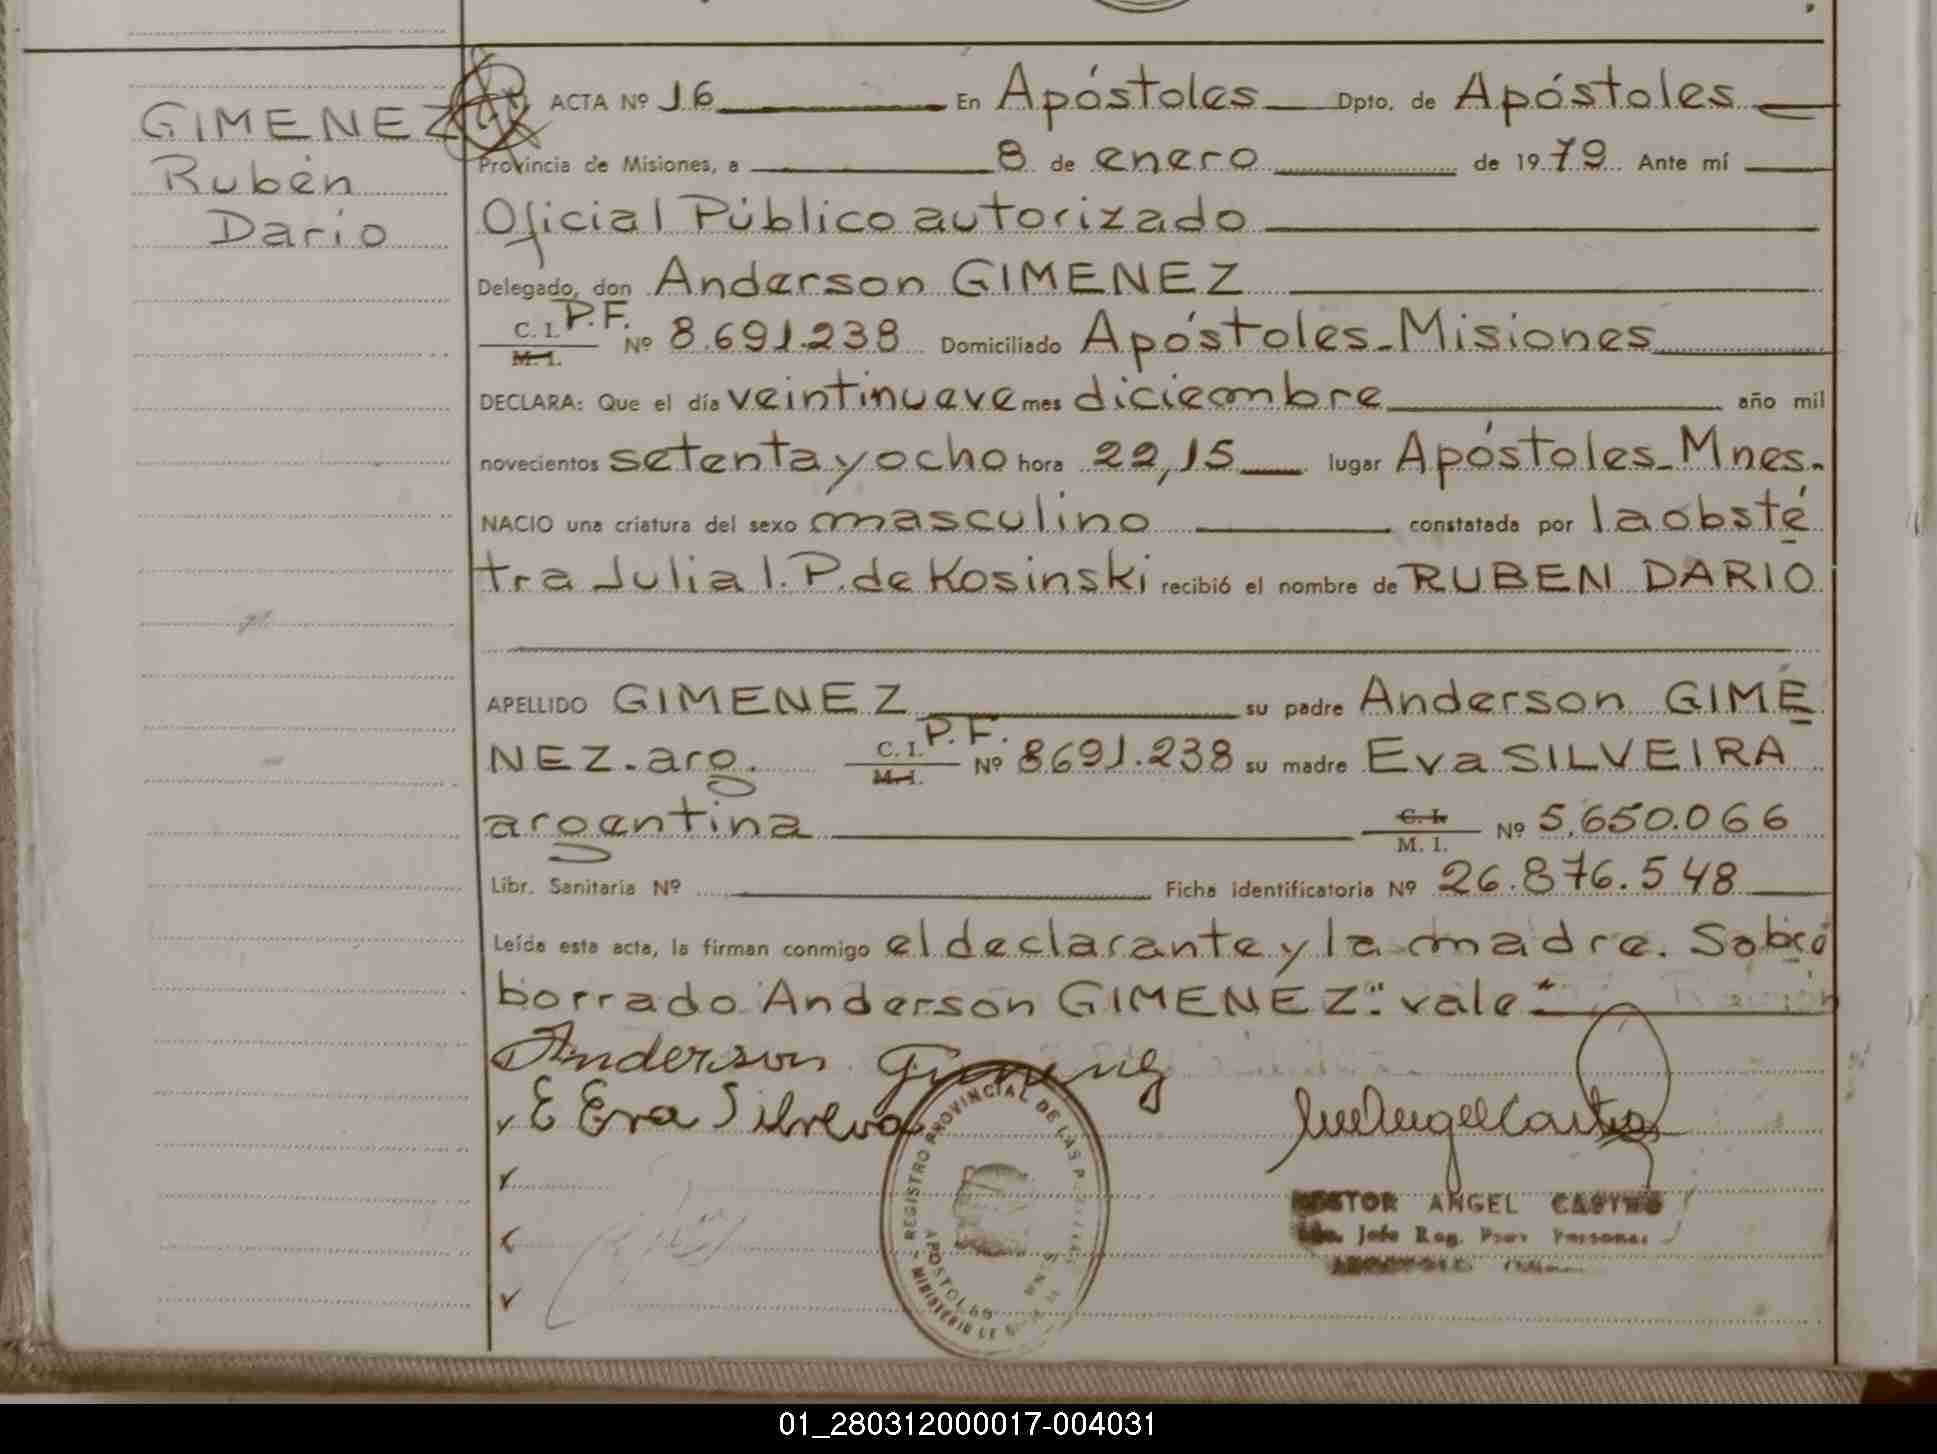 GIMENEZ
Rubén
Darío
ACTA Nº 16 En Apóstoles Dpto. de Apóstoles
Provincia de Misiones, a 8 de enero de 1979 Ante mí
Oficial Público autorizado
Delegado, don Anderson GIMENEZ
C. I. P.F.
M. I. Nº 8.691.238 Domiciliado Apóstoles-Misiones
DECLARA: Que el día veintinueve mes diciembre año mil
novecientos setenta y ocho hora 22,15 lugar Apóstoles-Mnes.
NACIO una criatura del sexo masculino constatada por la obsté
tra Julia I. P. de Kosinski recibió el nombre de RUBEN DARIO
APELLIDO GIMENEZ su padre Anderson GIME
NEZ-arg. C. I. P.F. M. I. Nº 8691.238 su madre Eva SILVEIRA
argentina C. I. M. I. Nº 5.650.066
Libr. Sanitaria Nº Ficha identificatoria Nº 26.876.548
Leída esta acta, la firman conmigo el declarante y la madre. Sobre
borrado Anderson GIMENEZ:" vale"
Anderson Gimenez
E Eva Silveva
REGISTRO PROVINCIAL DE LAS PERSONAS
APOSTOLES
MINISTERIO DE
NESTOR ANGEL CASTRO
Jefe Reg. Prov Personas
01_280312000017-004031